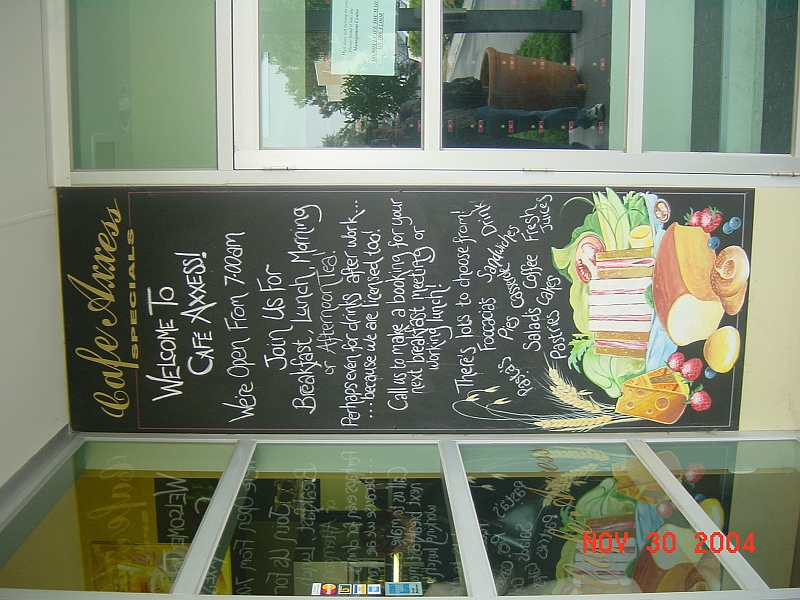 Cafe Axxess
SPECIALS
WELCOME TO
CAFE AXXESS!
We're Open From 7:00am
Join Us For
Breakfast, Lunch, Morning
or Afternoon Tea!
Perhaps even for drinks after work...
...because we are licensed too!
Call us to make a booking for your
next breakfast meeting or
working lunch!
There's lots to choose from!
Foccacia's Sandwiches Drink
Pasta's Pies Cassrole
Salads Coffee Fresh
Pastries Cakes Juices
NOV 30 2004